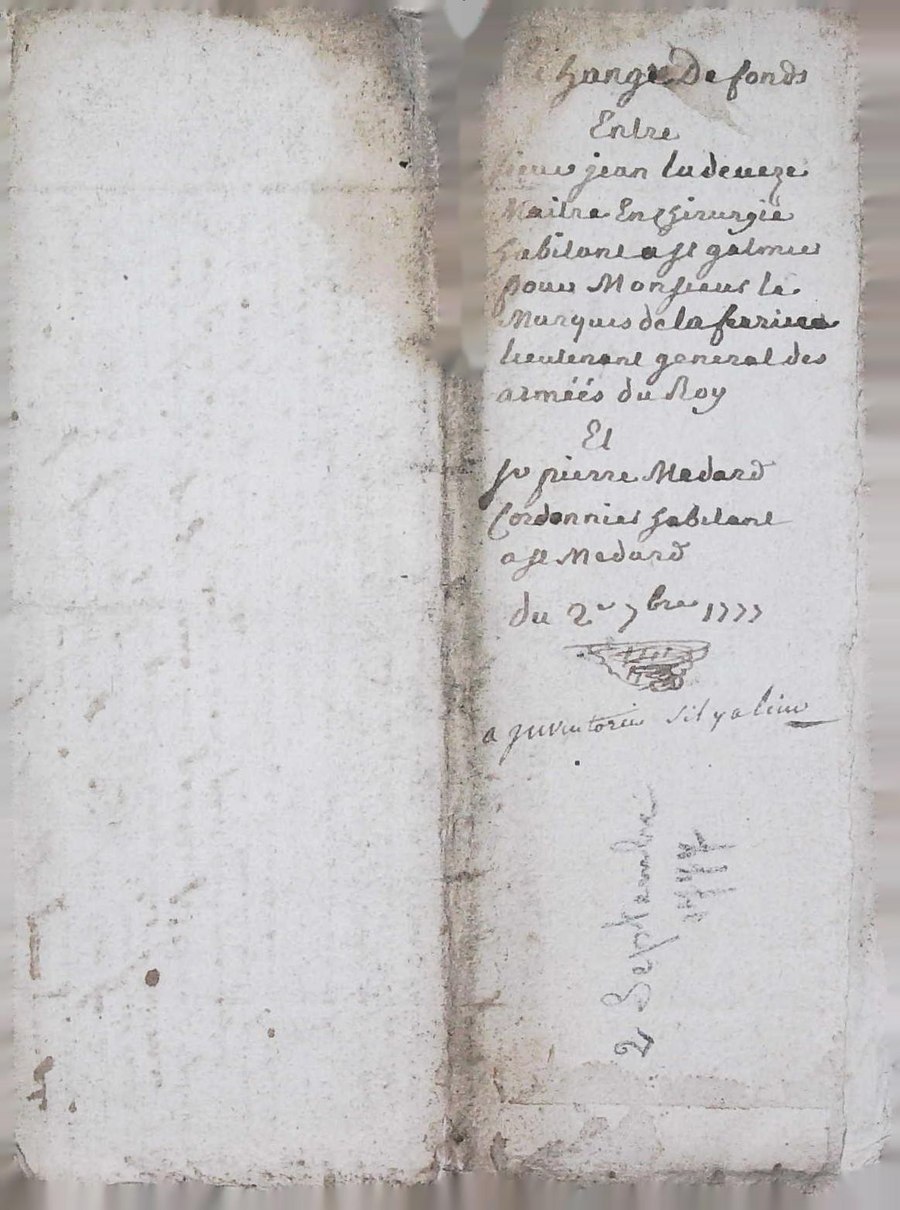 change De fonds
Entre
sieur jean ladeveze
Maitre En chirurgie
habitant a st galmier
pour Monsieur le
Marquis de la ferriere
lieutenant general des
arméés du Roy
Et
sr pierre Medard
Cordonnier habitant
a st Medard
du 2e 7bre 1777
a s'il y a lieu
2 Septembre
1777